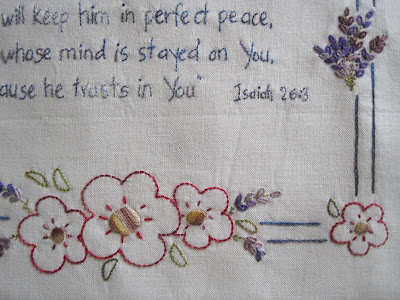 will keep him in perfect peace,
whose mind is stayed on You,
ause he trusts in You" Isaiah 26:3